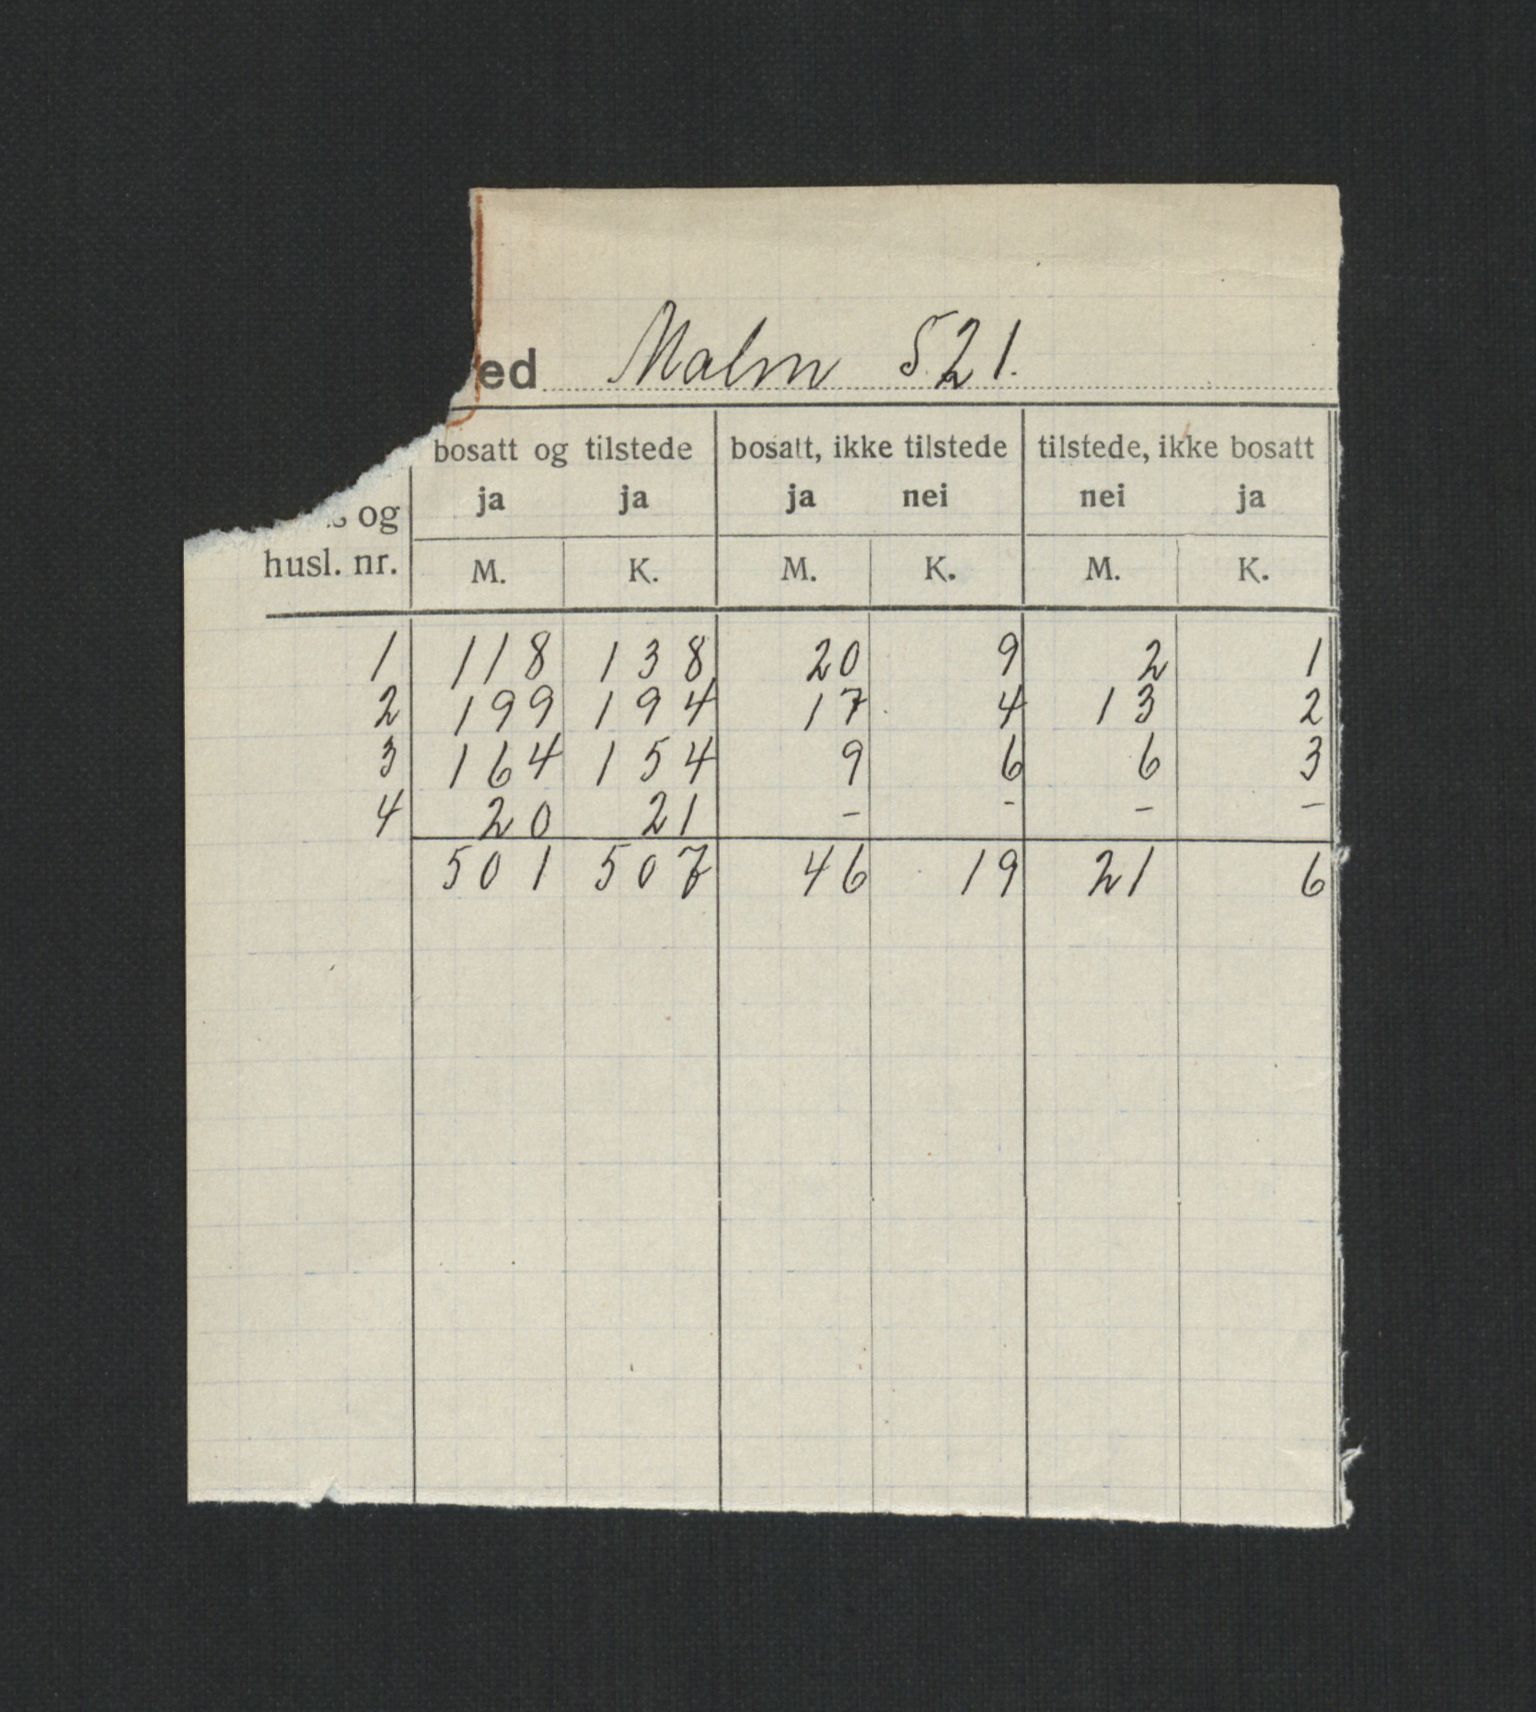 ed Malm 521.
bosatt og tilstede bosatt, ikke tilstede tilstede, ikke bosatt
ja ja ja nei nei ja
og
husl. nr. M. K. M. K. M. K.
1 118 138 20 9 2 1
2 199 194 17 4 13 2
3 164 154 9 6 6 3
4 20 21 - - - -
501 507 46 19 21 6